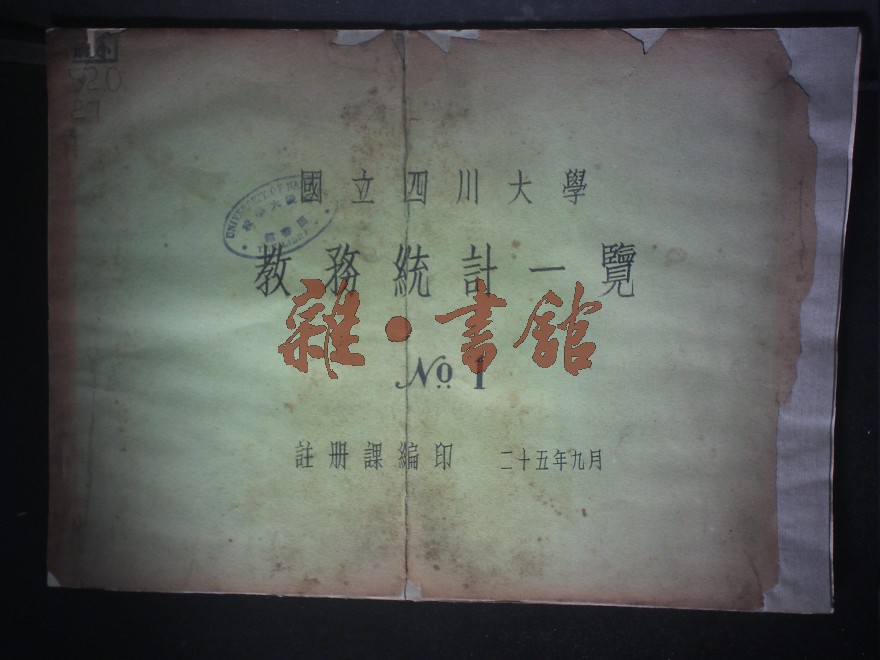 520
27
國立四川大學
教務統計一覽
雜·書館
No 1
註册課編印 二十五年九月
UNIVERSITY OF